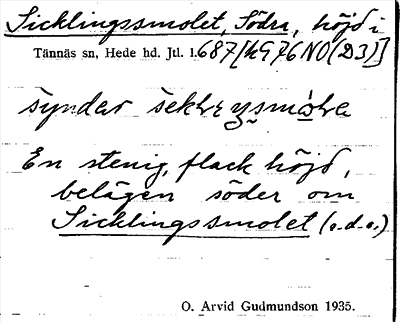 Sicklingssmolet, Södra, höjd i
Tännäs sn, Hede hd. Jtl. l. 687 [hG976NO(D3)]
syndar
En stenig, flack höjd,
belägen söder om
Sicklingssmolet (o.d.a.)
O. Arvid Gudmundson 1935.